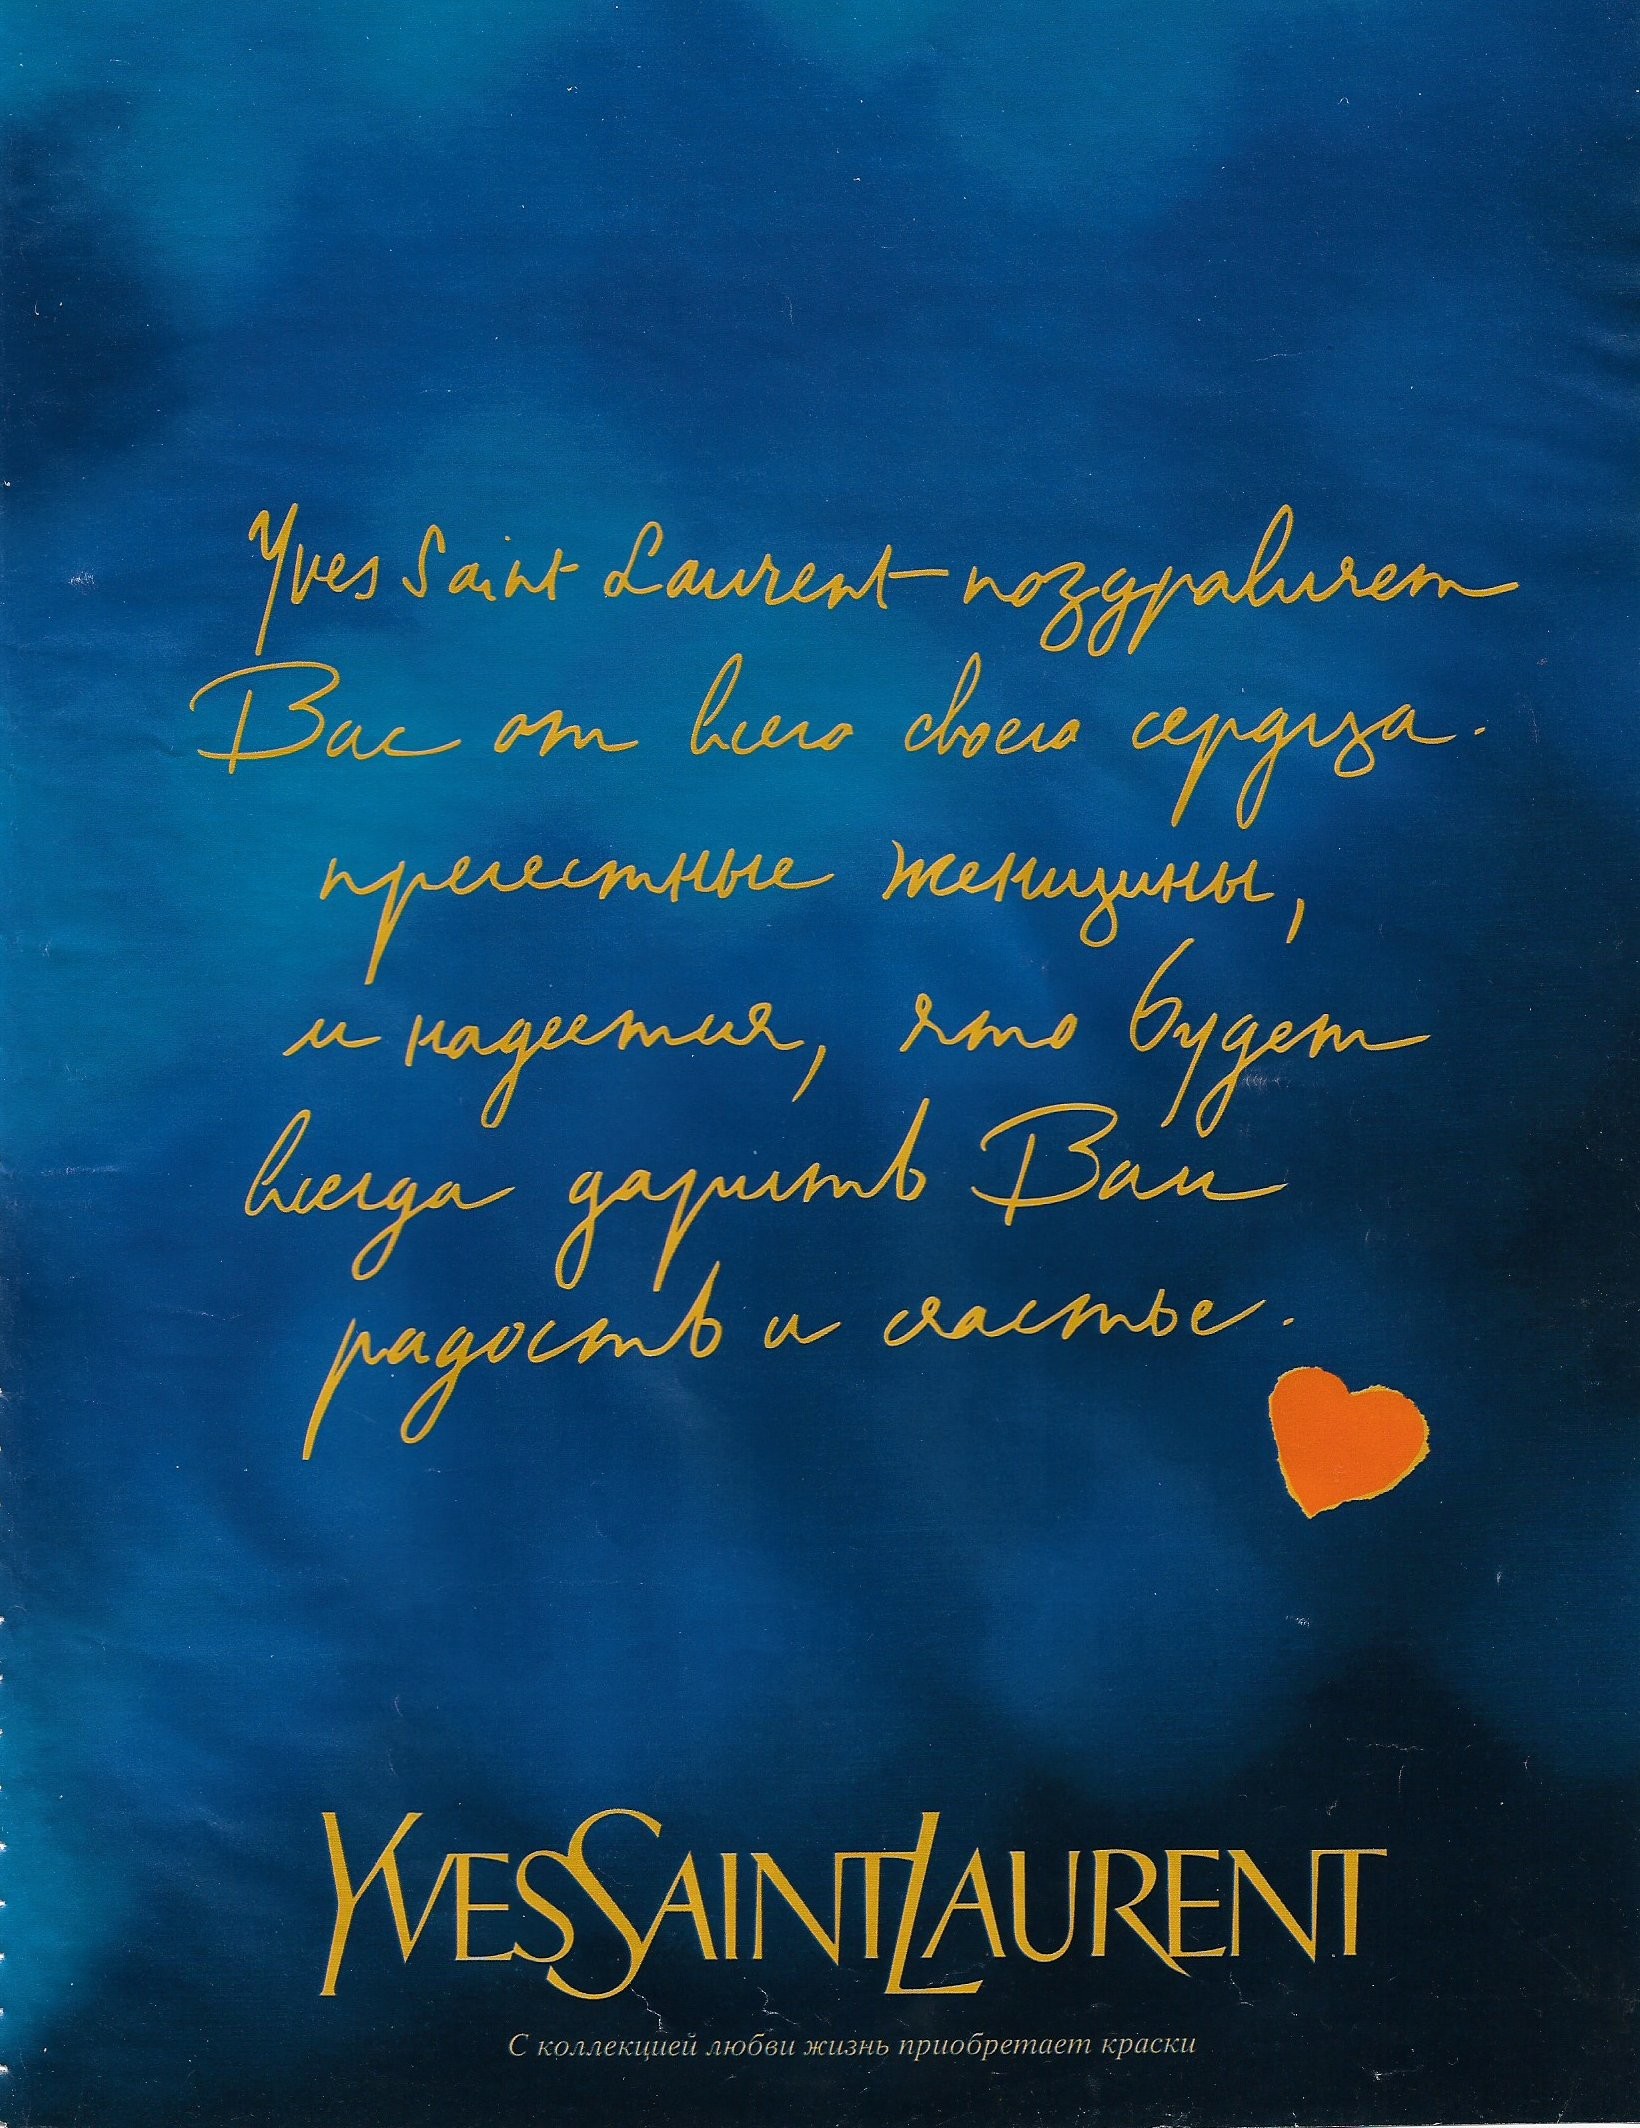 Yves Saint Laurent поздравляет
Вас от всего своего сердца.
прелестные женщины,
и надеется, что будет
всегда дарить Вам
радость и счастье.
YVESSAINTLAURENT
С коллекцией любви жизнь приобретает краски